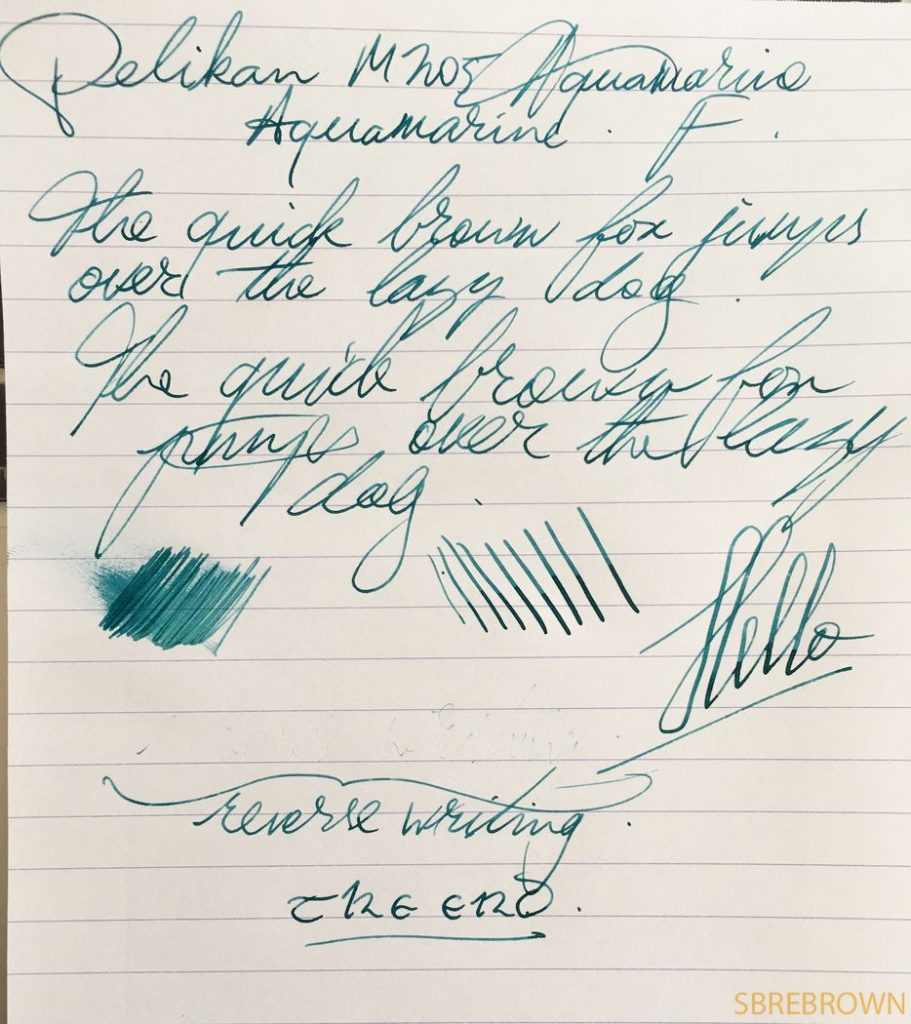 Pelikan M205 Aquamarine
Aquamarine. F.
The quick brown fox jumps
over the lazy dog.
The quick brown fox
jumps over the lazy
dog.
Hello
reverse writing.
THE END.
SBREBROWN